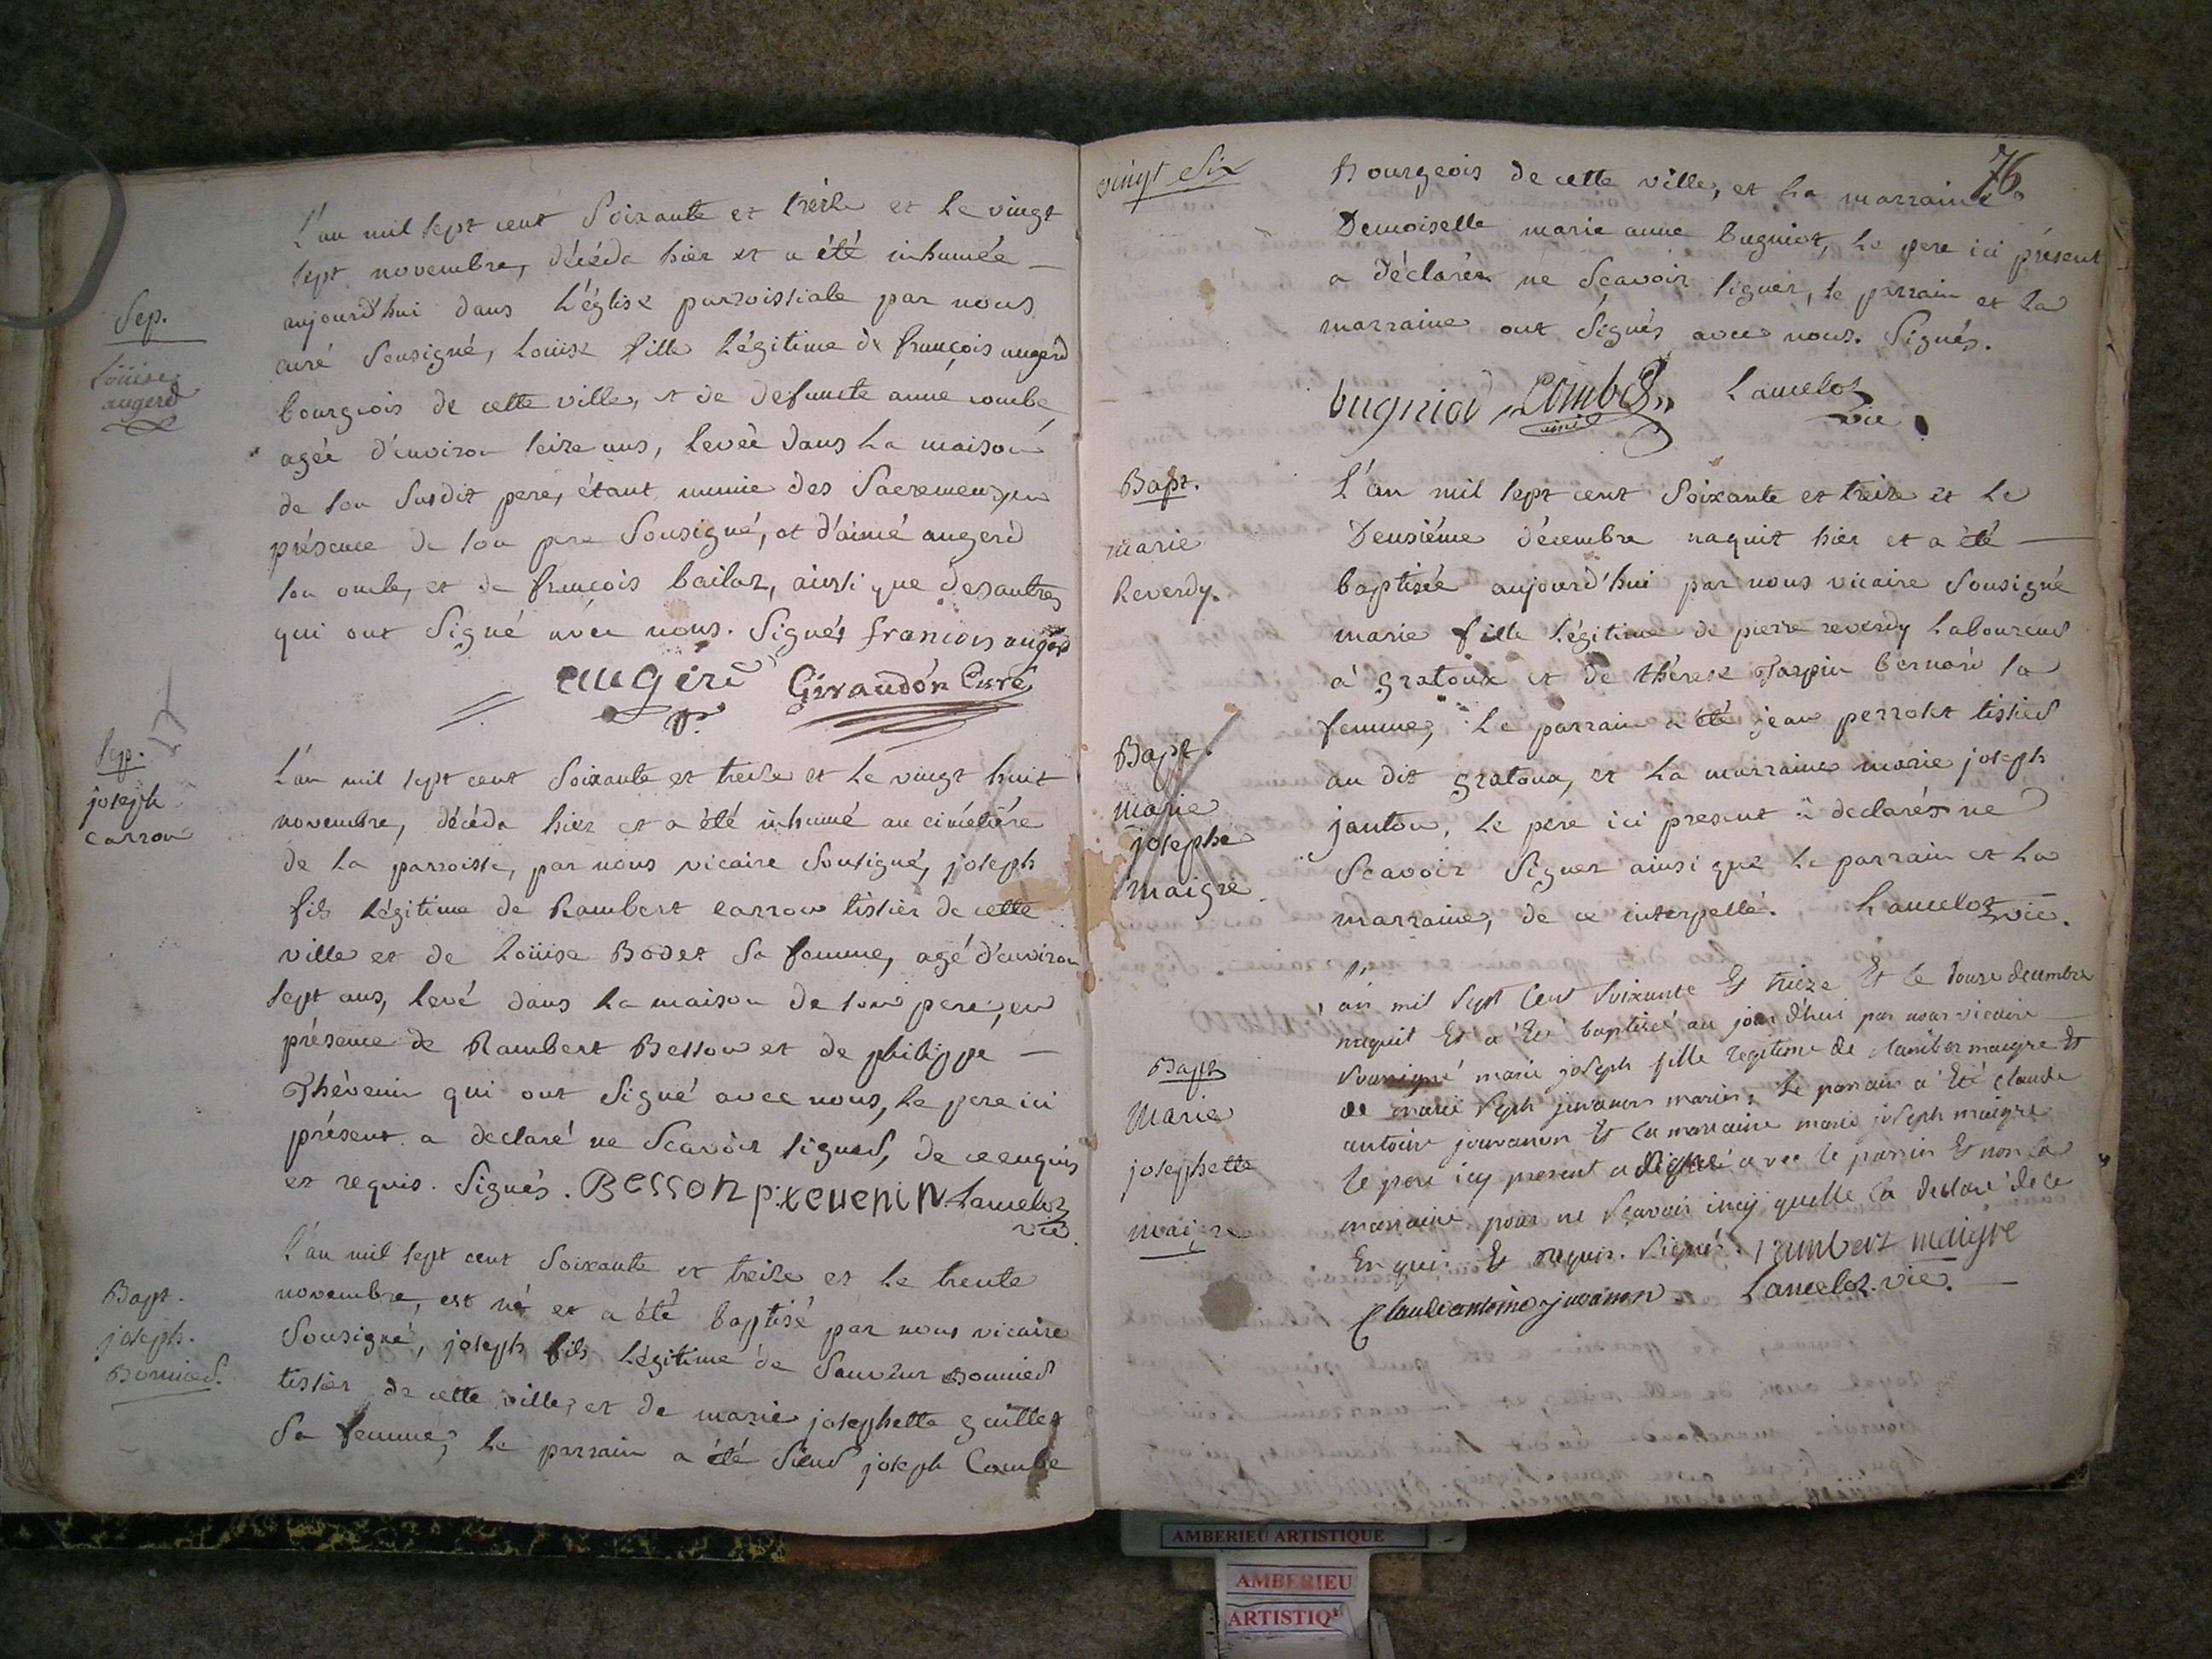 Sep.
Loüise
augerd
L'an mil sept cent Soixante et treize et Le vingt
sept novembre, décéda hier et a été inhumée
aujourd'hui dans L'église parroissiale par nous
curé Sousigné, Loüise fille Légitime de françois augerd
bourgeois de cette ville, et de defuncte anne combe
agée d'environ seize ans, Levée dans La maison
de son Susdit pere, étant munie des Sacremens, en
présence de son pere Sousigné, et d'aimé augerd
son oncle, et de françois bailat, ainsi que des autres
qui ont Signé avec nous. Signés francois augerd
augerd Girraudon Curé
Sep.
joseph
carron
L'an mil sept cent Soixante et treize et Le vingt huit
novembre, décéda hier et a été inhumé au cimétiére
de La parroisse, par nous vicaire Sousigné, joseph
fils Légitime de Rambert carron tissier de cette
ville et de Loüise Bodet Sa femme, agé d'environ
sept ans, Levé dans La maison de son pere, en
présence de Rambert Besson et de philippe
Thévenin qui ont Signé avec nous, Le pere ici
présent a declaré ne Scavoir signer, de ce enquis
et requis. Signés. Besson p. xevenin. Lancelot
vic.
Bapt.
joseph.
Bonnier.
L'an mil sept cent Soixante et treize et Le trente
novembre, est né et a été baptisé par nous vicaire
Sousigné, joseph fils Légitime de Sauveur Bonnier
tissier de cette ville, et de marie josephette guillet
Sa femme, Le parrain a été Sieur joseph Combe
vingt Six
76.
Bourgeois de cette ville, et La marraine
Demoiselle marie anne bugniot, Le pere ici présent
a déclarér ne Scavoir signer, Le parrain et La
marraine ont Signés avec nous. Signés.
bugniod Combe Lancelot
vic
Bapt.
marie
Reverdy.
L'an mil sept cent Soixante et treize et Le
Deusiéme décembre naquit hier et a été
baptisée aujourd'hui par nous vicaire Sousigné
marie fille Légitime de pierre reverdy Laboureur
à gratoux et de thérese Tarpin bernard sa
femme, Le parrain a été jean perrolet tissier
au dit gratoux, et La marraine marie joseph
janton, Le pere ici present a declarés ne
Scavoir Signer ainsi que Le parrain et La
marraine, de ce interpellé. Lancelot vic.
Bapt.
Marie
josephe
Maigre
Bapt
Marie
josephette
maigre
L'an mil Sept Cent Soixante Et treize Et Le douze decembre
naquit Et a été baptisée au jour d'hui par nous vicaire
Soussigné marie joseph fille legitime de Rambert maigre Et
de marie joseph juvanon mariés, Le parrain a Eté Claude
antoine jouvanon Et La marraine marie joseph maigre
le pere icy present a Signé avec le parrain Et non La
marraine pour ne Scavoir insy quelle La declaré de ce
En quis Et requis. Signés. rambert maigre
Claude antoine juvanon Lancelot. vic.
AMBERIEU ARTISTIQUE
AMBERIEU
ARTISTIQ